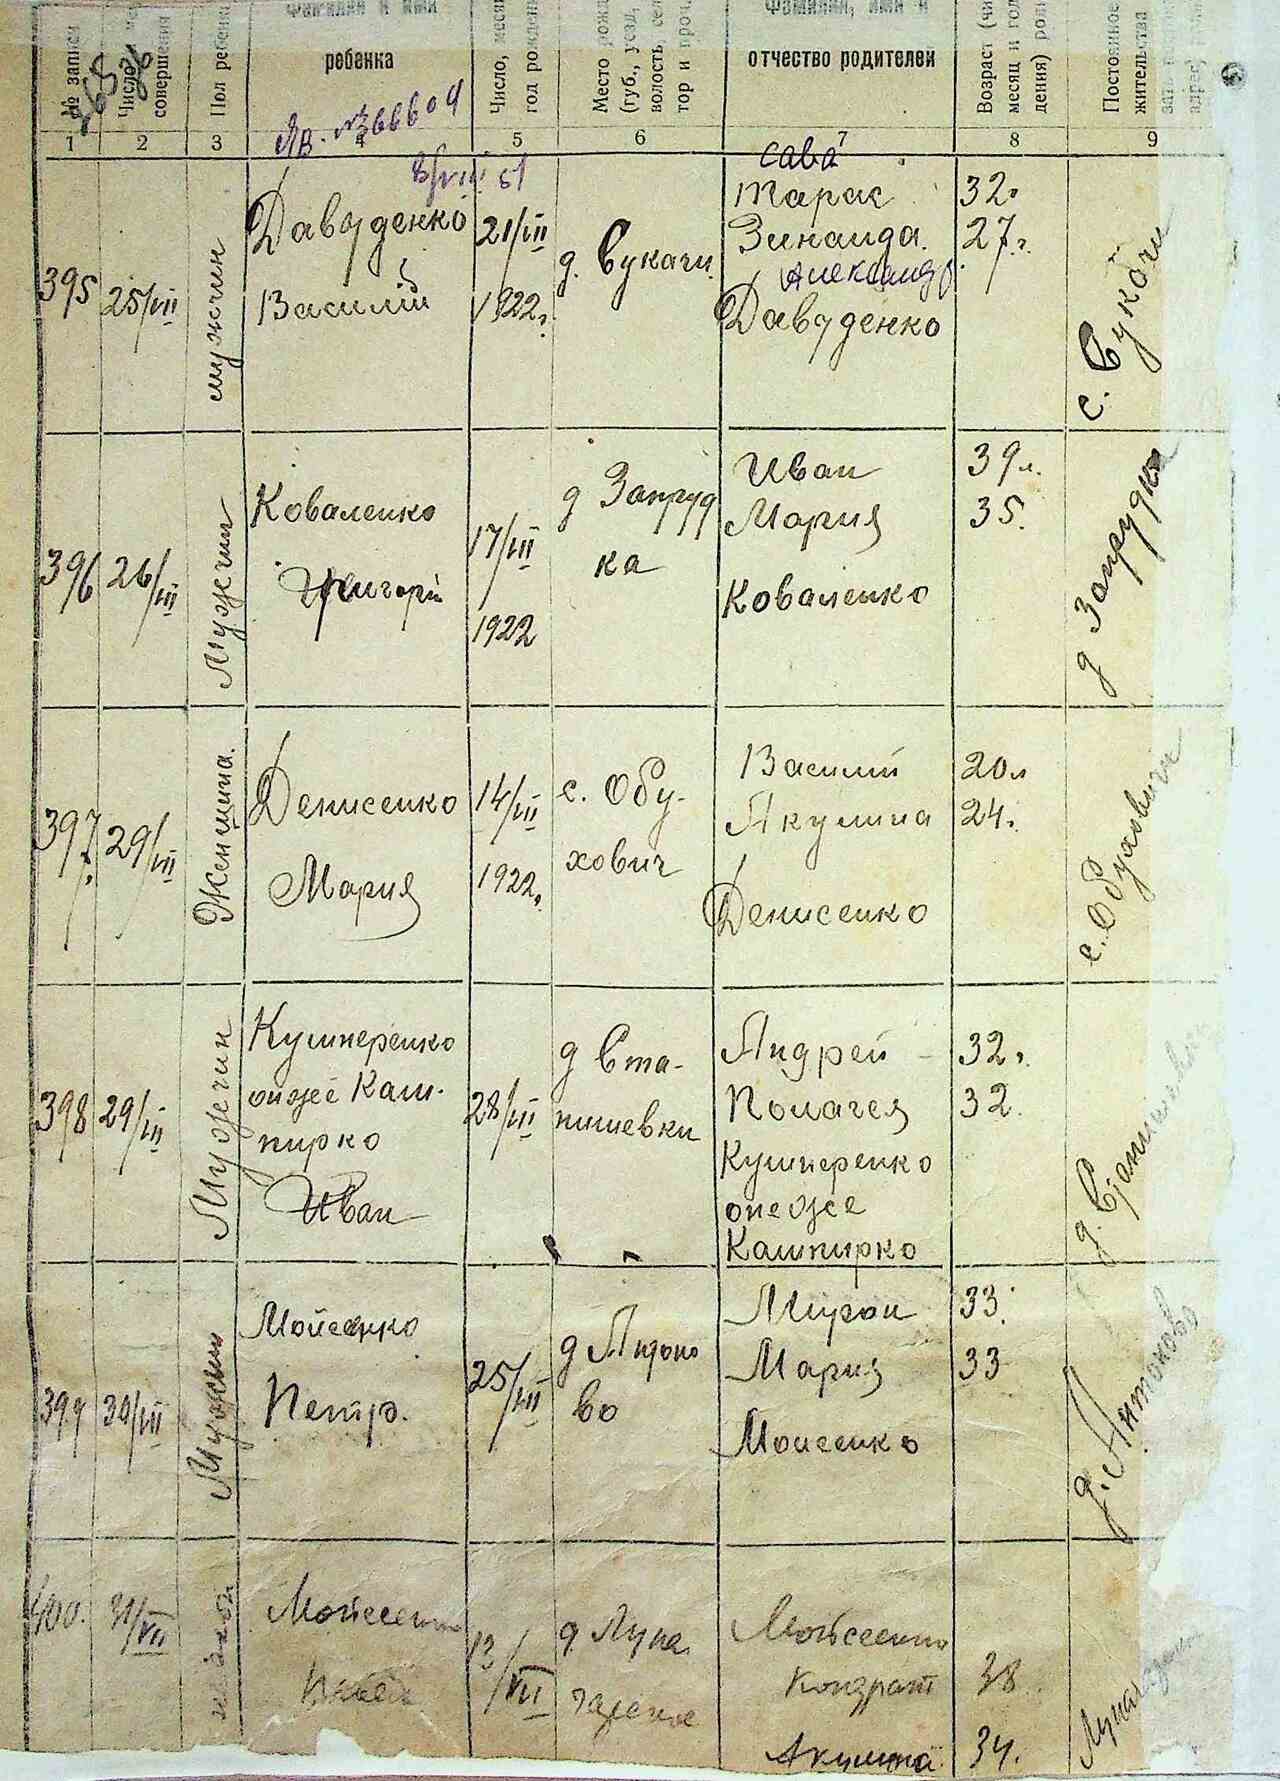 № записи
Число, ме
совершения
Пол ребен
Фамилия и имя
ребенка
Число, меся
год рожден
Место рожд
(губ., уезд,
волость, сел
тор и проч.
Фамилия, имя и
отчество родителей
Возраст (чи
месяц и год
дения) роди
Постоянное
жительства
1 2 3 4 5 6 7 8 9
Яв. № 366604
8/VIII 51
395
25/VII
мужчин
Давуденко
Василий
21/VII
1922г.
д. Сукачи
Сава
Тарас
Зинаида
Александр.
Давуденко
32г
27г.
с. Сукачи
396
26/VII
Мужчин
Коваленко
Григорий
17/VII
1922
д Запруд
ка
Иван
Мария
Коваленко
39л.
35.
д Запрудка
397.
29/VII
Женщина.
Денисенко
Мария
14/VII
1922г.
с. Обу-
хович
Василий
Акулина
Денисенко
20л
24.
с. Обуховичи
398
29/VII
Мужчин
Кушперенко
онже Каш-
пирко
Иван
28/VII
д Ста-
нишевки
Андрей
Полагея
Кушперенко
онеже
Кашпирко
32.
32.
д. Станишевка
399
30/VII
Мужчин
Мойсенко
Петр.
25/VII
д Антоно
во
Мирон
Мария
Моисенко
33.
33
д. Антоново
400.
31/VII
Мойсеенко
13/VII
д Луна
чарское
Мойсеенко
Кондрат
Акулина
38
34.